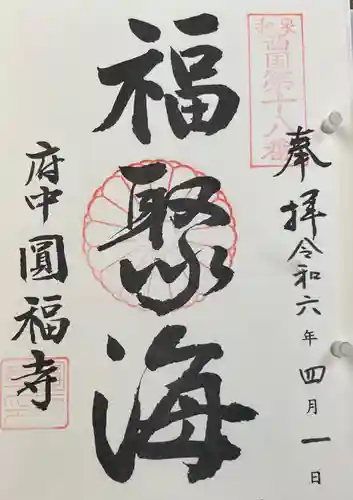 奉拝
令和六年四月一日
泉和
西国第十八番
福聚海
府中圓福寺